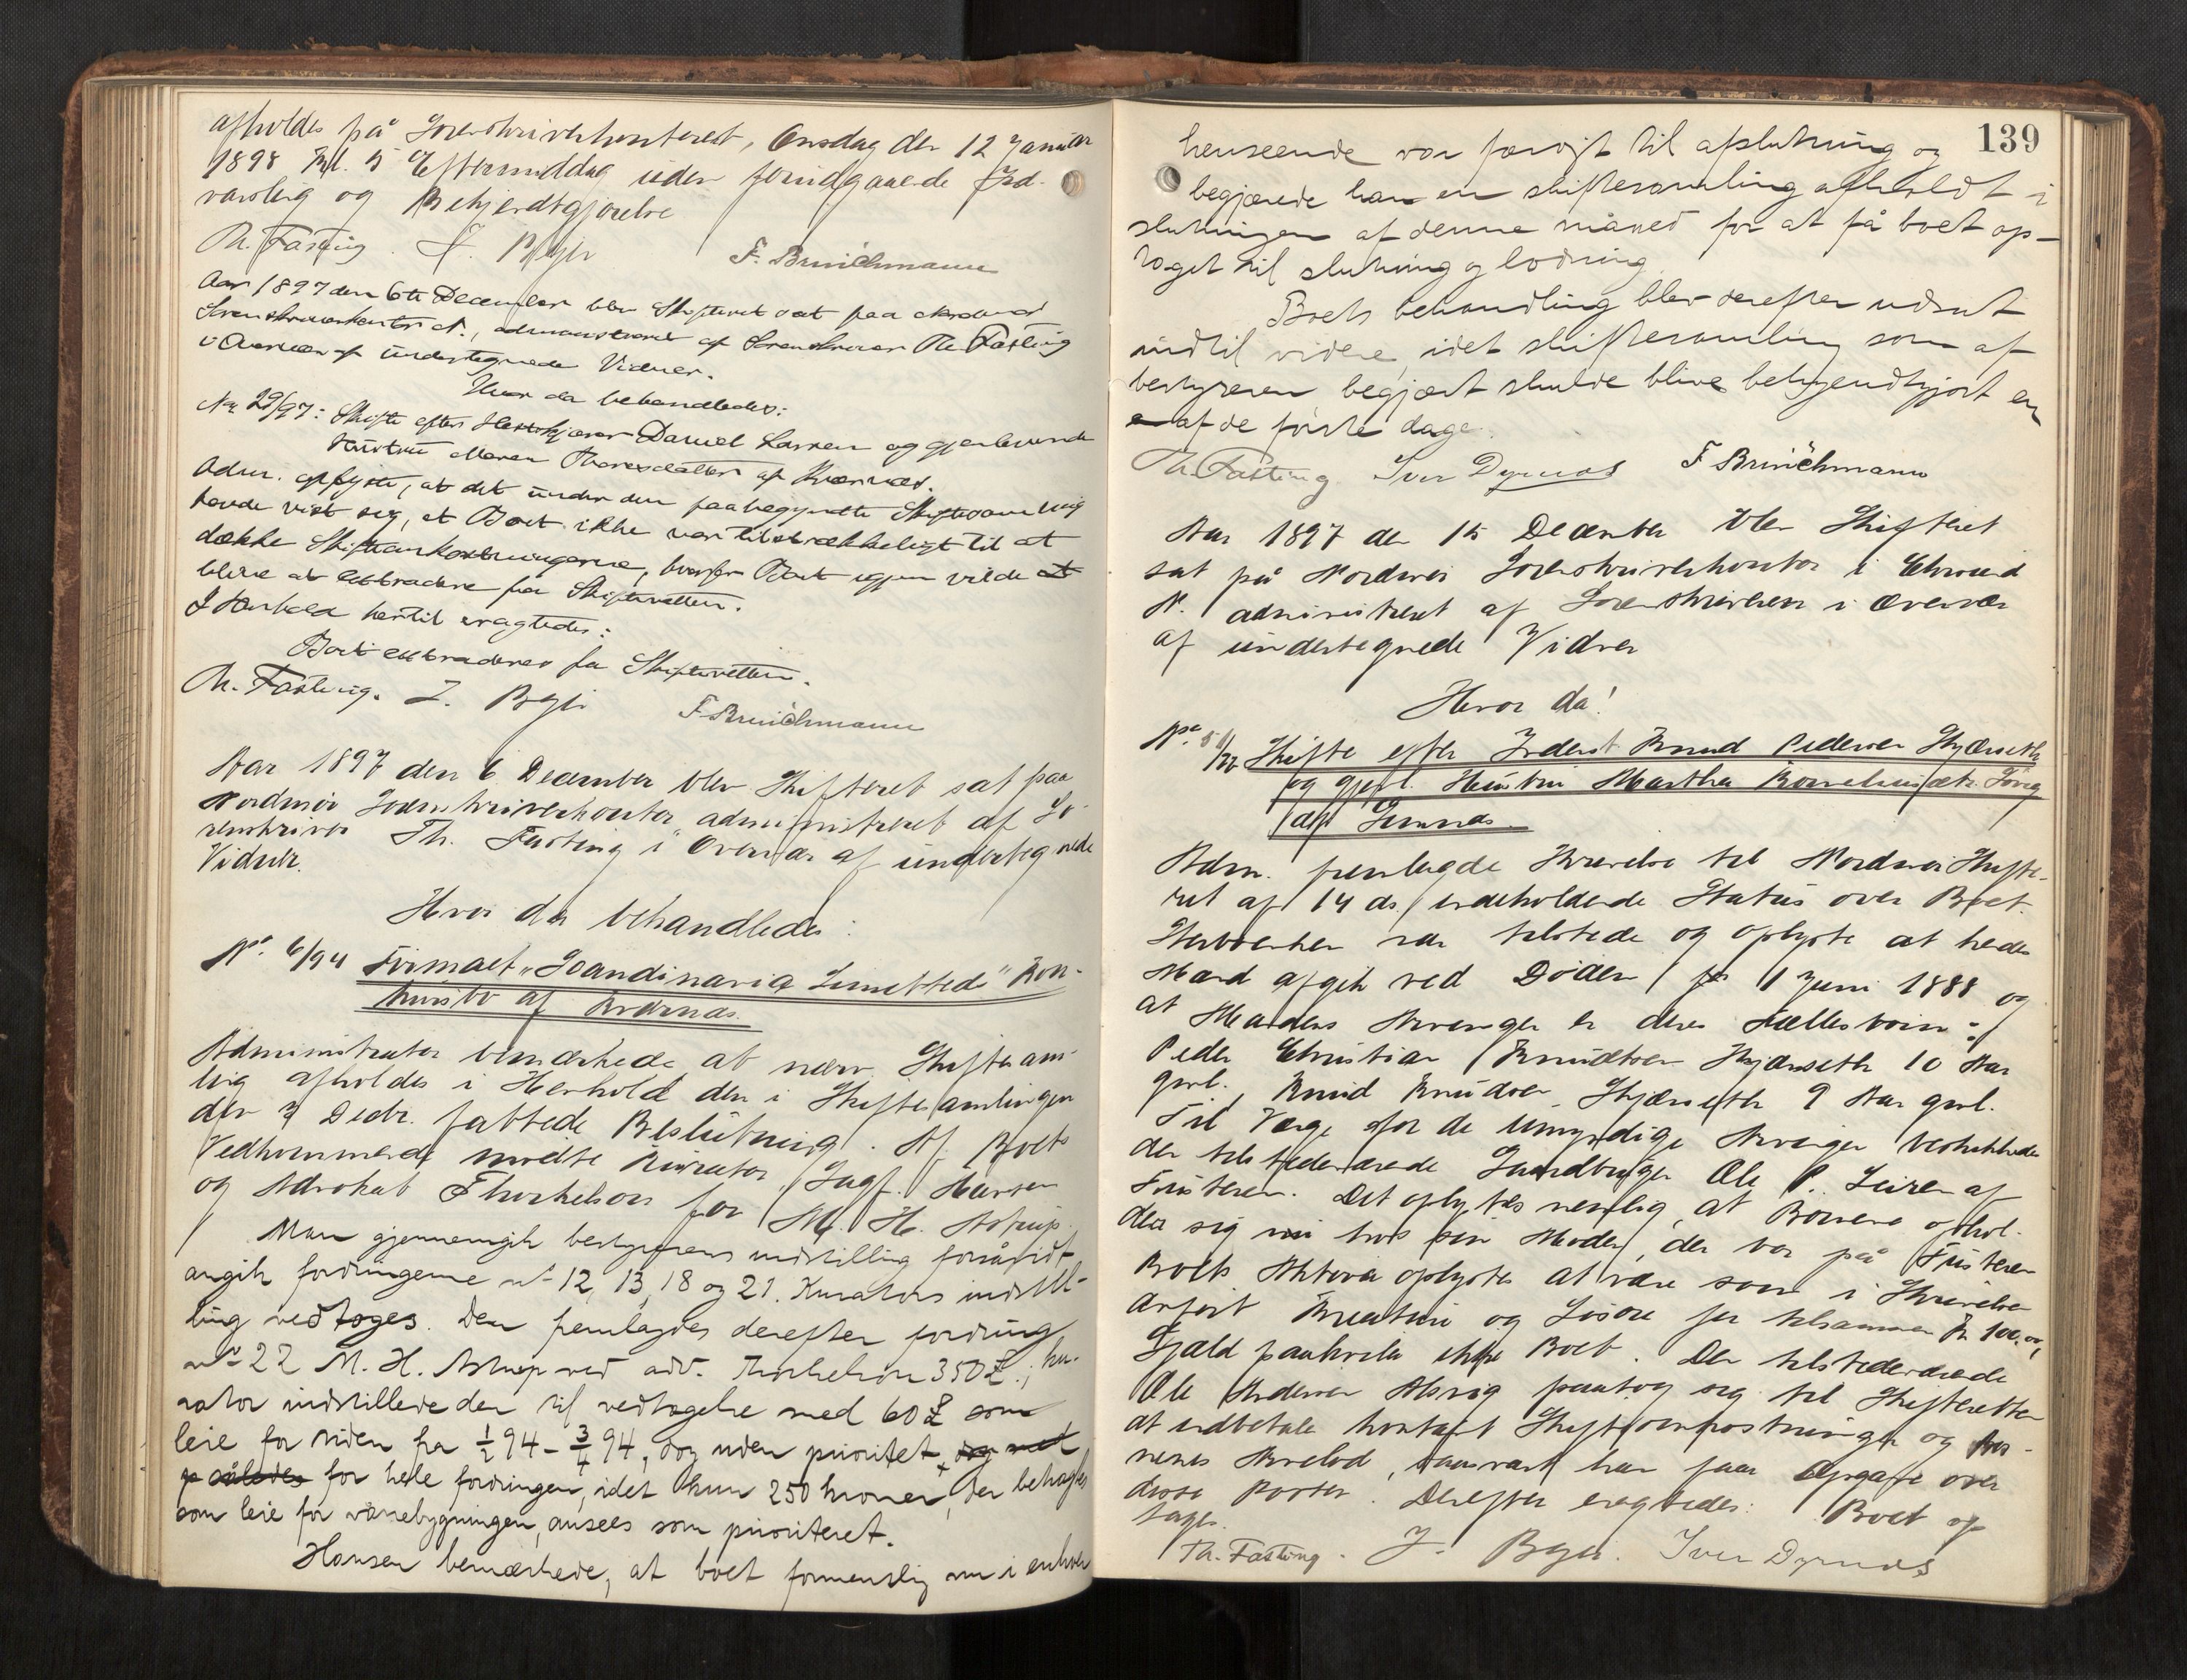 afholdes på Sorenskriverkontoret, Onsdag den 12 Januar
1898 Kl. 5 Eftermiddag uden foregaaende Ind-
varsling og Bekjendtgjørelse
Th. Fasting. J. Byhr F. Brinchmann
Aar 1897 den 6te December blev Skifteret sat paa
Sorenskriverkontoret, administreret af Sorenskriver Th. Fasting
i Overvær af undertegnede Vidner.
Hvor da behandledes:
No. 29/97: Skifte efter Daniel Larsen og gjenlevende
Hustru Maren Thoresdatter af Kvernes.
Adm. oplyste, at det under den paabegyndte Skiftesamling
havde vist sig, at Boet ikke var tilstrækkeligt til at
dække Skifteomkostningerne, hvorfor Boet igjen vilde
blive at extradere fra Skifteretten.
I Henhold hertil eragtedes:
Boet extraderes fra Skifteretten.
Th. Fasting. J. Byhr F. Brinchmann
Aar 1897 den 6 December blev Skifteret sat paa
Nordmør Sorenskriverkontor administreret af So-
renskriver Th. Fasting i Overvær af undertegnede
Vidner.
Hvor da behandledes:
No. 6/94 Firmaet "Scandinavia Limetted" Kon-
kursbo af
Administrator bemærkede at nærv. Skiftesam-
ling afholdes i Henhold den i Skiftesamlingen
den 3 Decbr. fattede Beslutning. Af Boets
Vedkommende mødte Kurator, Sagf. Hansen
og Advokat Thorkelson for M. H. Astrup.
Man gjennemgik bestyrerens indstilling forsåvidt
angik fordringerne no 12, 13, 18 og 21. Kurators indstil-
ling vedtoges. Den fremlagdes derefter fordring
no 22 M. H. Astrup ved adv. Thorkelson 350 £.; ku-
rator indstillede den til vedtagelse med 60 £ som
leie for tiden fra 1/2 94 - 3/4 94, dog uden prioritet
således for hele fordringen, idet kun 250 kroner, der betragtes
som leie for våningsbygningen, ansees som prioriteret.
Hansen bemærkede, at boet formentlig nu i enhver
139
henseende var færdigt til afslutning og
begjærede han en skiftesamling afholdt i
slutningen af denne måned for at få boet op-
taget til slutning og lodning.
Boets behandling blev derefter udsat
indtil videre, idet skiftesamling som af
bestyreren begjært skulde blive bekjendtgjort en
af de første dage.
Th. Fasting Iver Dyrnes F Brinchmann
Aar 1897 den 15 December blev Skifteret
sat på Nordmør Sorenskriverkontor i Chrsund
N. administreret af Sorenskriveren i Overvær
af undertegnede Vidner
Hvor da!
No. Skifte efter Inderst Knud Pedersen Skjærseth
og gjenl. Hustru Martha
af
Adm. fremlagde Skrivelse til Nordmør Skifte-
ret af 14 ds. indeholdende Status over Boet.
Sterboenken var tilstede og oplyste at hendes
Mand afgik ved Døden 1 Juni 1888 og
at Mandens Arvinger er deres Fællesbørn:
Peder Christian Knudtsen Skjærseth 10 Aar
gml. Knud Knudsen Skjærseth 9 Aar gml.
Til Værge for de umyndige Arvinger beskikkedes
den tilstedeværende Gaardbruger Ole P. Leiren af
Fusteren. Det oplystes nemlig, at Børnene ophol-
der sig nu hos sin Moder, der bor på Fusteren
Boets Aktiva oplystes at være som i Skrivelsen
anført Kreatur og Løsøre for tilsammen Kr 100,00,
Gjæld paahviler ikke Boet. Den tilstedeværende
Ole Andersen Alsvig paatog sig til Skifteretten
at indbetale kontant Skifteomkostninger og Bør-
nenes Arvelod, saasnart han faar Opgave over
disse Poster. Derefter eragtedes: Boet op
tages.
Th. Fasting. J. Byhr. Iver Dyrnes